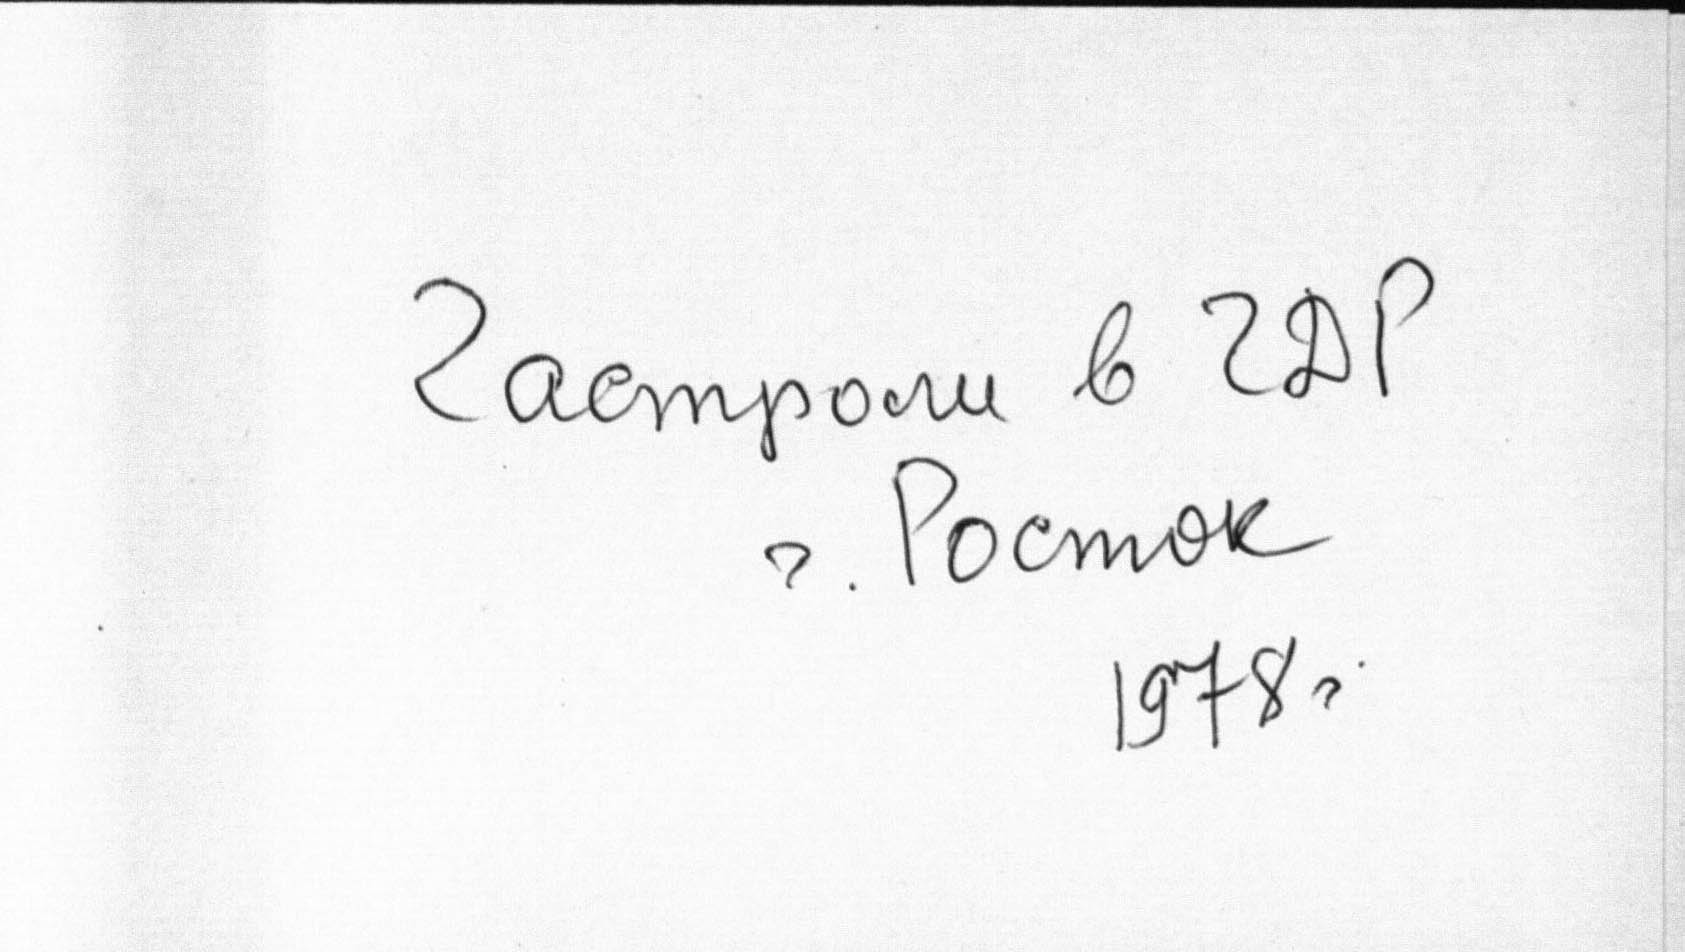 Гастроли в ГДР
г. Росток
1978г.